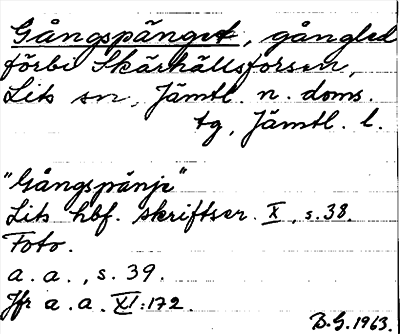 Gångspånget, gångled
förbi Skärhällsforsen,
Lits sn, Jämtl. n. doms.
tg, Jämtl. l.
"Gångspånje"
Lits hbf. skriftser. X, s. 38.
Foto.
a. a., s. 39.
Jfr a. a. XI: 172.
B.G. 1963.